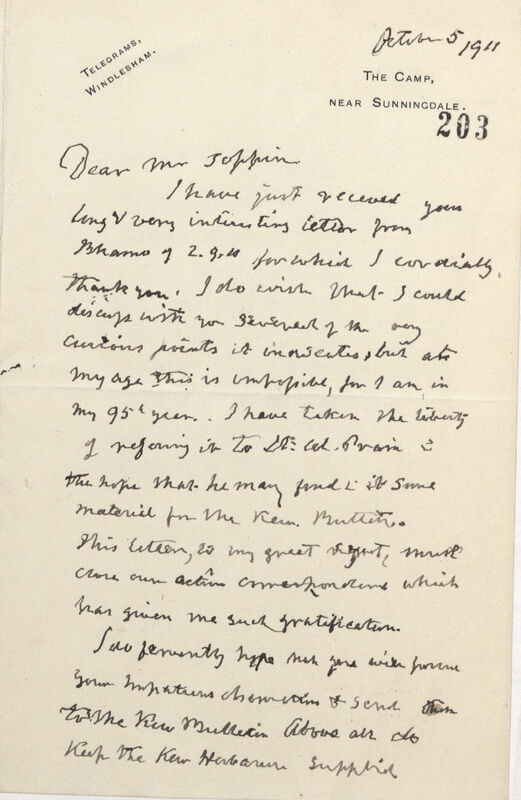 October 5 1911
TELEGRAMS,
WINDLESHAM.
THE CAMP,
NEAR SUNNINGDALE.
203
Dear Mr Toppin
I have just received your
long & very interesting letter from
Bhamo of 2.9.11 for which I cordially
thank you. I do wish that I could
discuss with you several of the very
curious points it indicates, but at
my age this is impossible, for I am in
my 95th year. I have taken the liberty
of refering it to Lt. Col. Prain in
the hope that he may find in it some
material for the Kew Bulletin.
This letter, to my great regret, must
close our active correspondence which
has given me such gratification.
I do fervently hope that you will pursue
your Impatiens observation & send them
to the Kew Bulletin Above all do
keep the Kew Herbarium supplied